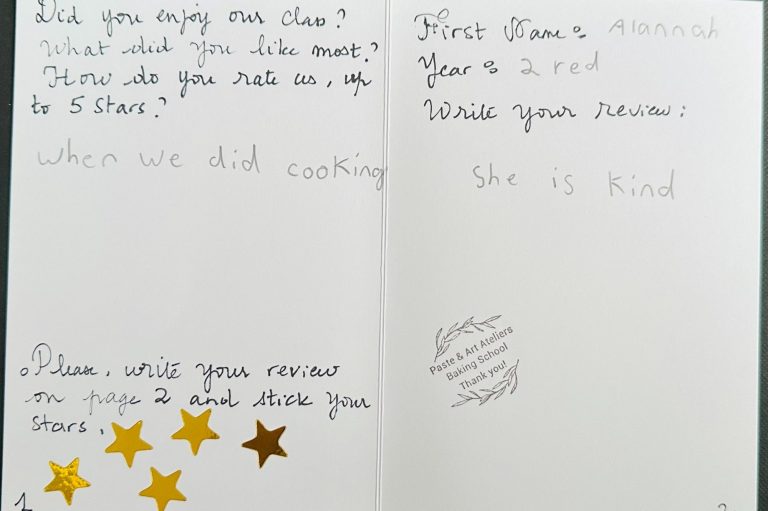 Did you enjoy our class?
What did you like most?
How do you rate us, up
to 5 stars?
when we did cooking
Please, write your review
on page 2 and stick your
stars.
1
First Name: Alannah
Year: 2 red
Write your review:
She is kind
Paste & Art Ateliers
Baking School
Thank you!